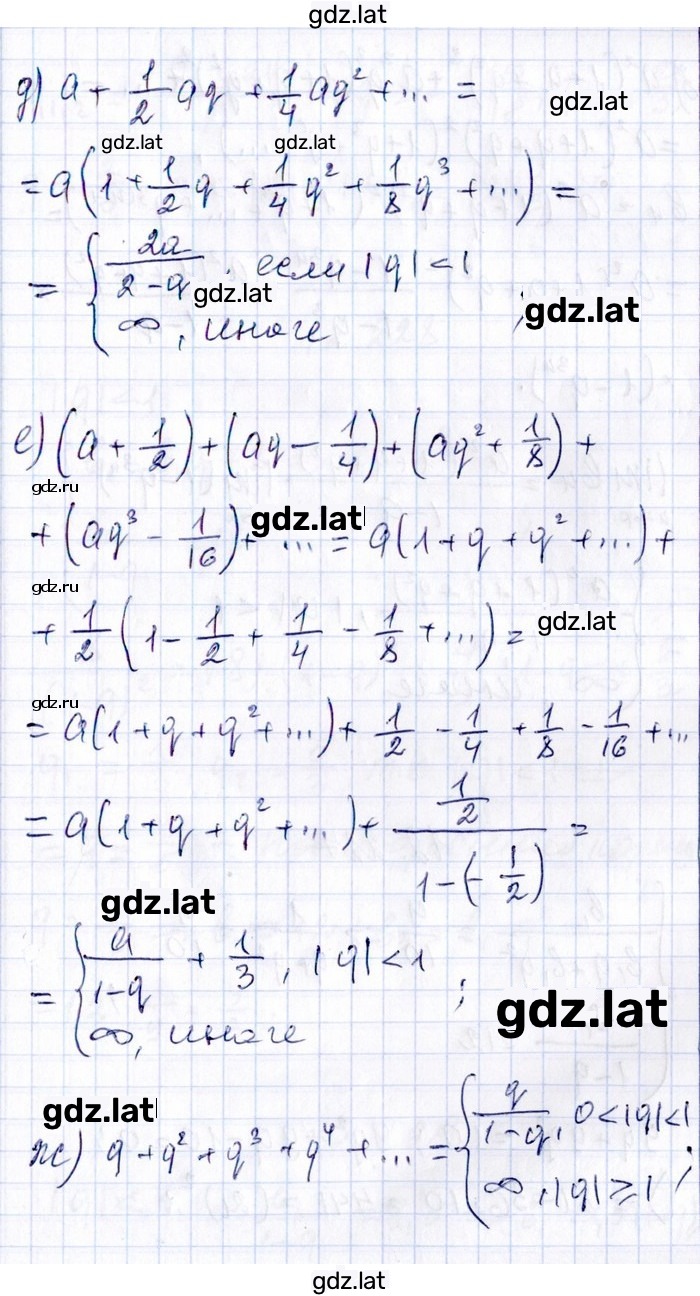 gdz.lat
д) a + 1/2 aq + 1/4 aq² + ... =
gdz.lat
gdz.lat
gdz.lat
= a(1 + 1/2 q + 1/4 q² + 1/8 q³ + ...) =
= { 2a/(2-q), если |q| < 1
gdz.lat
gdz.lat
∞, иначе ;
е) (a + 1/2) + (aq - 1/4) + (aq² + 1/8) +
gdz.ru
gdz.lat
+ (aq³ - 1/16) + ... = a(1 + q + q² + ...) +
gdz.ru
gdz.lat
+ 1/2 (1 - 1/2 + 1/4 - 1/8 + ...) =
gdz.ru
= a(1 + q + q² + ...) + 1/2 - 1/4 + 1/8 - 1/16 + ...
= a(1 + q + q² + ...) + (1/2)/(1-(-1/2)) =
gdz.lat
= { a/(1-q) + 1/3, |q| < 1
∞, иначе ;
gdz.lat
gdz.lat
ж) q + q² + q³ + q⁴ + ... = { q/(1-q), 0 < |q| < 1
∞, |q| ≥ 1 ;
gdz.lat